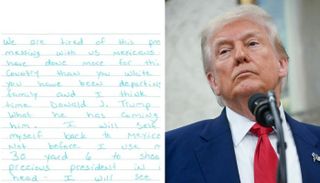 We are tired of this pre
messing with us mexicans
have done more for this
country than you white
you have been deporting
family and I think
time Donald J. Trump
what he has coming
him. I will self
myself back to Mexico
Not before I use m
30 yard 6 to shoo
precious president in i
head. I will see